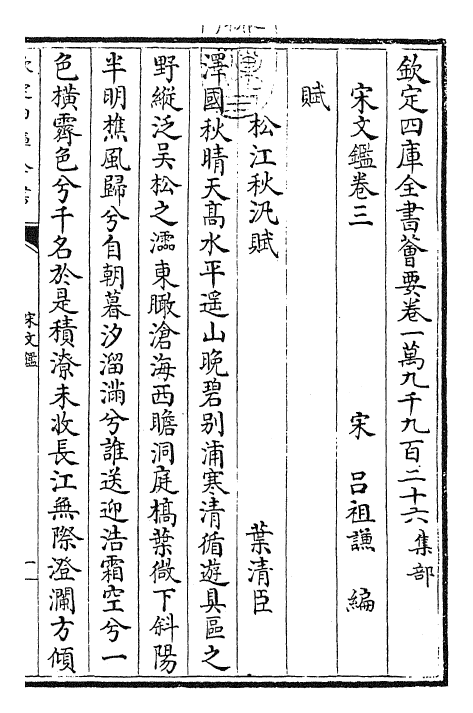 欽定四庫全書薈要卷一萬九千九百二十六集部
宋文鑑卷三
宋 吕祖謙 編
賦
松江秋汎賦
葉清臣
澤國秋晴天髙水平遥山晚碧别浦寒清循遊具區之
野縱泛吴松之濡東瞰滄海西瞻洞庭槁葉微下斜陽
半明樵風歸兮自朝暮汐溜滿兮誰送迎浩霜空兮一
色横霽色兮千名於是積潦未收長江無際澄瀾方傾
宋文鑑
一